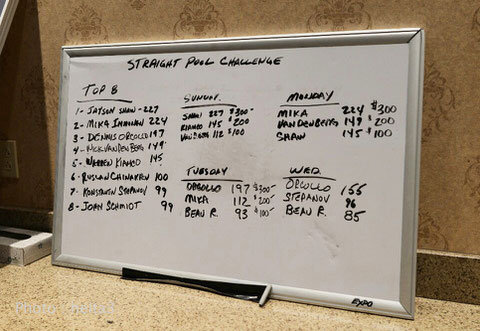 STRAIGHT POOL CHALLENGE
TOP 8
1- JAYSON SHAW - 227
2- MIKA IMMONEN 224
3- DENNIS ORCOLLO 197
4- NICK VAN DEN BERG 149
5- WARREN KIAMCO 145
6- RUSLAN CHINAHKEN 100
7- KONSTANTIN STEPANOV 99
8- JOHN SCHMIDT 99
SUNDAY
SHAW 227 $300
KIAMCO 145 $200
VAN D BERG 112 $100
MONDAY
MIKA 224 $300
VANDENBERG 149 $200
SHAW 145 $100
TUESDAY
ORCOLLO 197 $300
MIKA 112 $200
BEAU R. 93 $100
WED.
ORCOLLO 155
STEPANOV 96
BEAU R. 85
EXPO